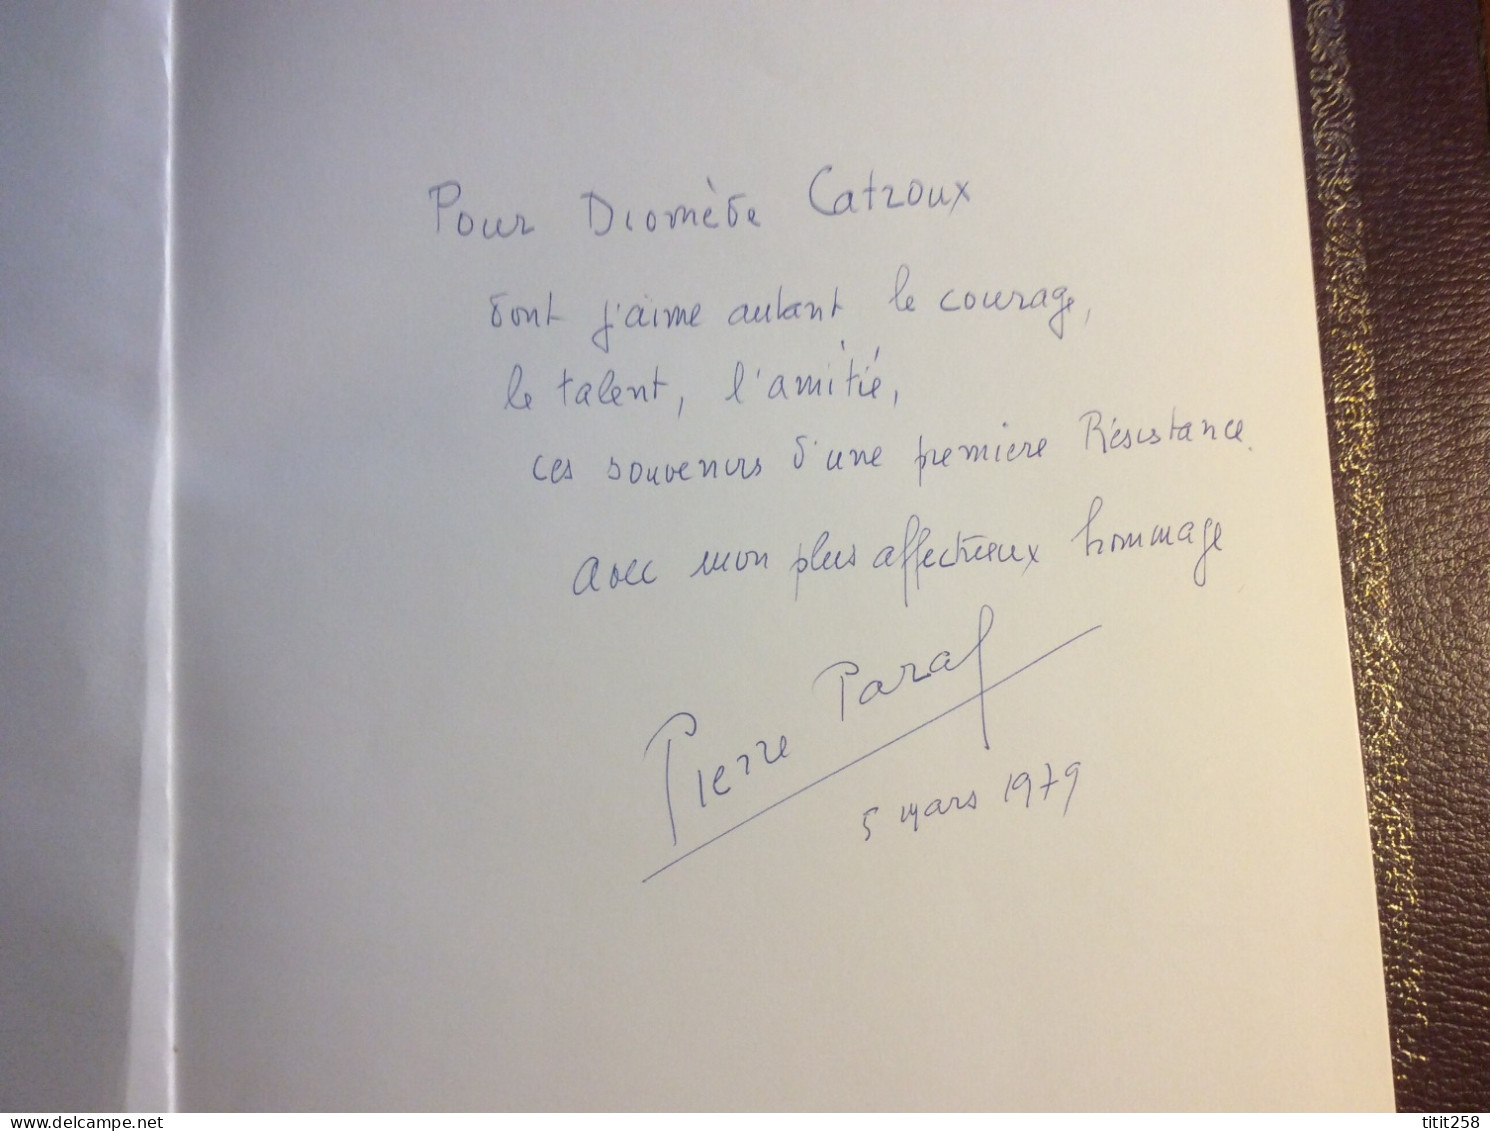 Pour Diomède Catroux
dont j'aime autant le courage,
le talent, l'amitié,
ces souvenirs d'une premiere Résistance.
avec mon plus affectueux hommage
Pierre Paraf
5 mars 1979
delcampe.net
titit258